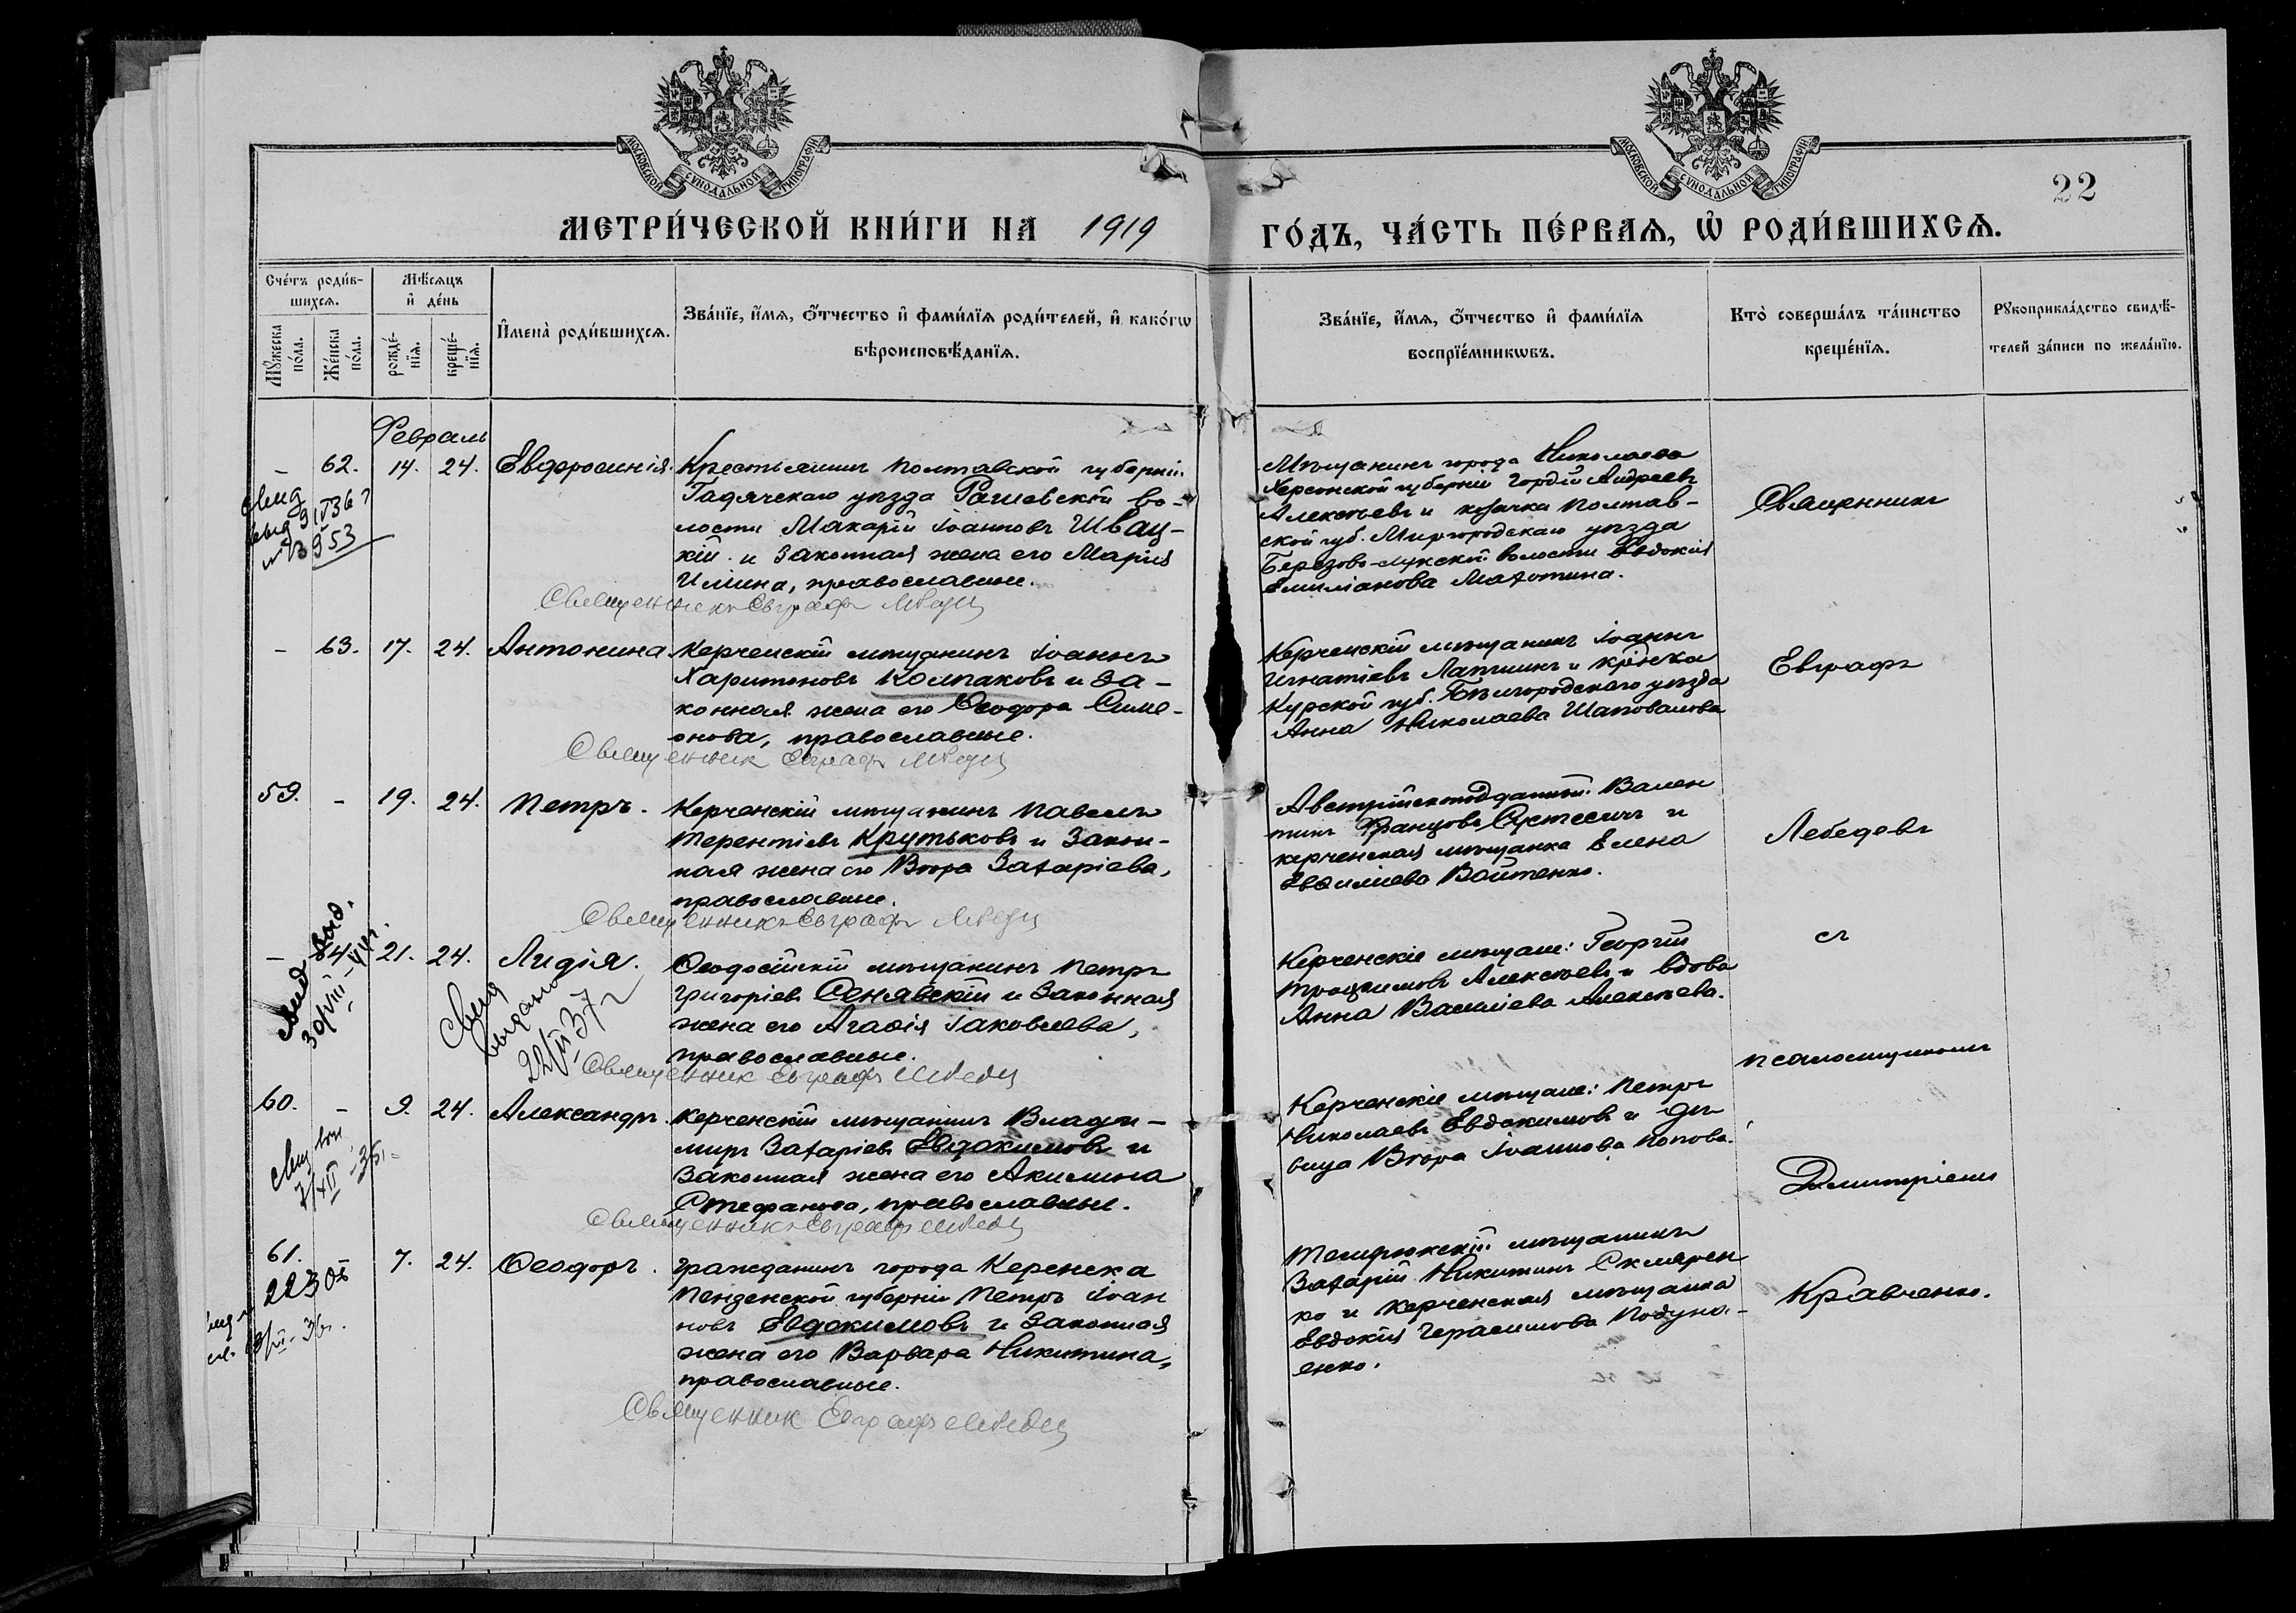 МОСКОВСКОЙ СѴНОДАЛЬНОЙ ТИПОГРАФІИ
МОСКОВСКОЙ СѴНОДАЛЬНОЙ ТИПОГРАФІИ
22
МЕТРИ́ЧЕСКОЙ КНИ́ГИ НА 1919 ГО́ДЪ, ЧА́СТЬ ПЕ́РВАѦ, Ѡ҆ РОДИ́ВШИХСѦ.
Сче́тъ роди́в-
шихсѧ.
Мꙋ́жеска
по́ла.
Же́нска
по́ла.
Мѣ́сѧцъ
и҆ де́нь
рожде́-
нїѧ.
креще́-
нїѧ.
И҆мена̀ роди́вшихсѧ.
Зва́нїе, и҆́мѧ, ѻ҆́тчество и҆ фами́лїѧ роди́телей, и҆ како́гѡ
вѣроисповѣ́данїѧ.
Зва́нїе, и҆́мѧ, ѻ҆́тчество и҆ фами́лїѧ
воспрїе́мникѡвъ.
Кто̀ соверша́лъ та́инство
креще́нїѧ.
Рꙋкоприкла́дство свидѣ́-
телей за́писи по жела́нїю.
Февраль
– 62. 14. 24. Евфросинія.
Крестьянинъ Полтавской губерніи
Гадячскаго уѣзда Рашевской во-
лости Макарій Іоанновъ Швац-
кій и законная жена его Марія
Илиина, православные.
Священникъ Евграфъ Лебедев
Мѣщанинъ города Николаева
Херсонской губерніи Гордій Андреевъ
Алексѣевъ и козачка Полтав-
ской губ. Миргородскаго уѣзда
Березово-Лукской волости Евдокія
Емиліанова Махотина.
Священникъ
Свид
выд 9
№ 953
– 63. 17. 24. Антонина.
Керченскій мѣщанинъ Іоаннъ
Харитоновъ Колпаковъ и за-
конная жена его Ѳеодора Симе-
онова, православные.
Священник Евграфъ Лебедев
Керченскій мѣщанинъ Іоаннъ
Игнатіевъ Лапшинъ и кр-нка
Курской губ. Бѣлгородскаго уѣзда
Анна Николаева Шаповалова
Евграфъ
59. – 19. 24. Петръ.
Керченскій мѣщанинъ Павелъ
Терентіевъ Крутьковъ и закон-
ная жена его Вѣра Захаріева,
православные.
Священникъ Евграфъ Лебедев
Австрійскоподданный Вален
тинъ Францовъ и
керченская мѣщанка Елена
Евфиміева Войтенко.
Лебедевъ
– 64. 21. 24. Лидія.
Ѳеодосійскій мѣщанинъ Петръ
Григоріевъ Сенявскій и законная
жена его Агафія Іаковлева,
православные.
Священник Евграфъ Лебедев
Керченскіе мѣщане: Георгій
Трофимовъ Алексѣевъ и вдова
Анна Василіева Алексѣева.
съ
Свид
выдано
22/II 37 г
30/VIII
псаломщикомъ
60. – 9. 24. Александръ.
Керченскій мѣщанинъ Влади-
миръ Захаріевъ Евдокимовъ и
законная жена его Акилина
Стефанова, православные.
Священникъ Евграфъ Лебедев
Керченскіе мѣщане: Петръ
Николаевъ Евдокимовъ и дѣ-
вица Вѣра Іоаннова Попова.
Димитріемъ
7/XII -35
61. 7. 24. Ѳеодоръ.
Гражданинъ города Керенска
Пензенской губерніи Петръ Іоан
новъ Евдокимовъ и законная
жена его Варвара Никитина,
православные.
Священник Евграфъ Лебедев
Темрюкскій мѣщанинъ
Захарій Никитинъ Скляренко
ко и керченская мѣщанка
Евдокія Герасимова Подуна-
енко.
Кравченко.